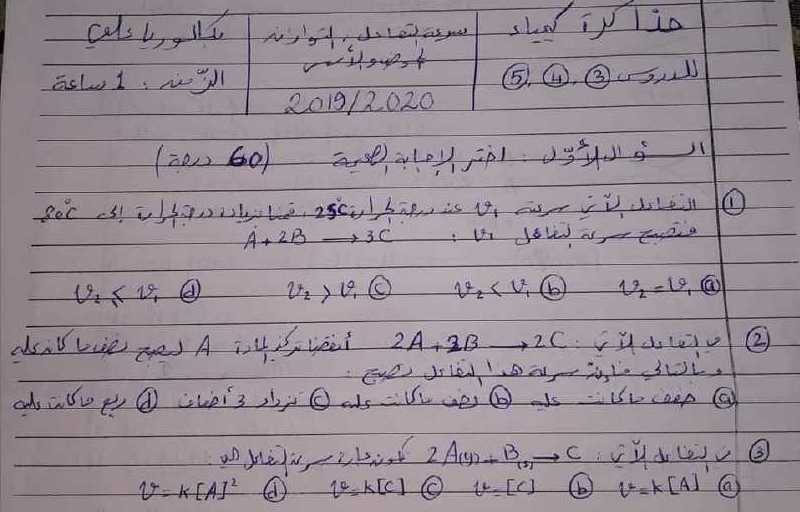 مذاكرة كيمياء
سرعة التفاعل، التوازن
بكالوريا علمي
للدروس ③، ④، ⑤
الزمن: 1 ساعة
2019/2020
السؤال الأول: اختر الإجابة الصحيحة (60 درجة)
① التفاعل الآتي سرعته v₁ عند درجة الحرارة 25°C، قمنا بزيادة درجة الحرارة إلى 30°C
فتصبح سرعة التفاعل v₂: A+2B → 3C
ⓐ v₂ = v₁ ⓑ v₂ < v₁ ⓒ v₂ > v₁ ⓓ v₂ ⩽ v₁
② في التفاعل الآتي: 2A+3B → 2C أنقصنا تركيز المادة A ليصبح نصف ما كان عليه
وبالتالي فإن سرعة هذا التفاعل تصبح:
ⓐ ضعف ما كانت عليه ⓑ نصف ما كانت عليه ⓒ تزداد 3 أضعاف ⓓ ربع ما كانت عليه
③ في التفاعل الآتي: 2A(g)+B(s) → C تكون عبارة سرعة التفاعل هي:
ⓐ v=k[A] ⓑ v=[C] ⓒ v=k[C] ⓓ v=k[A]²